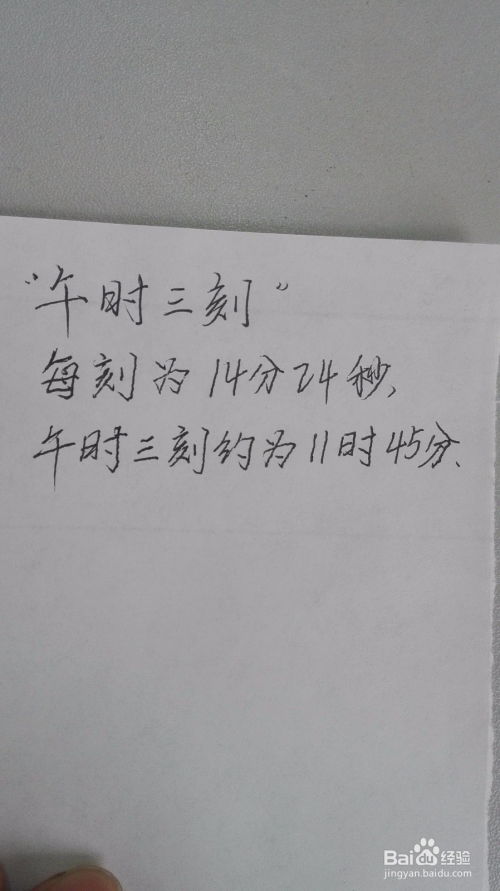 “午时三刻”
每刻为14分24秒,
午时三刻约为11时45分、
Baidu经验
jingyan.baidu.com